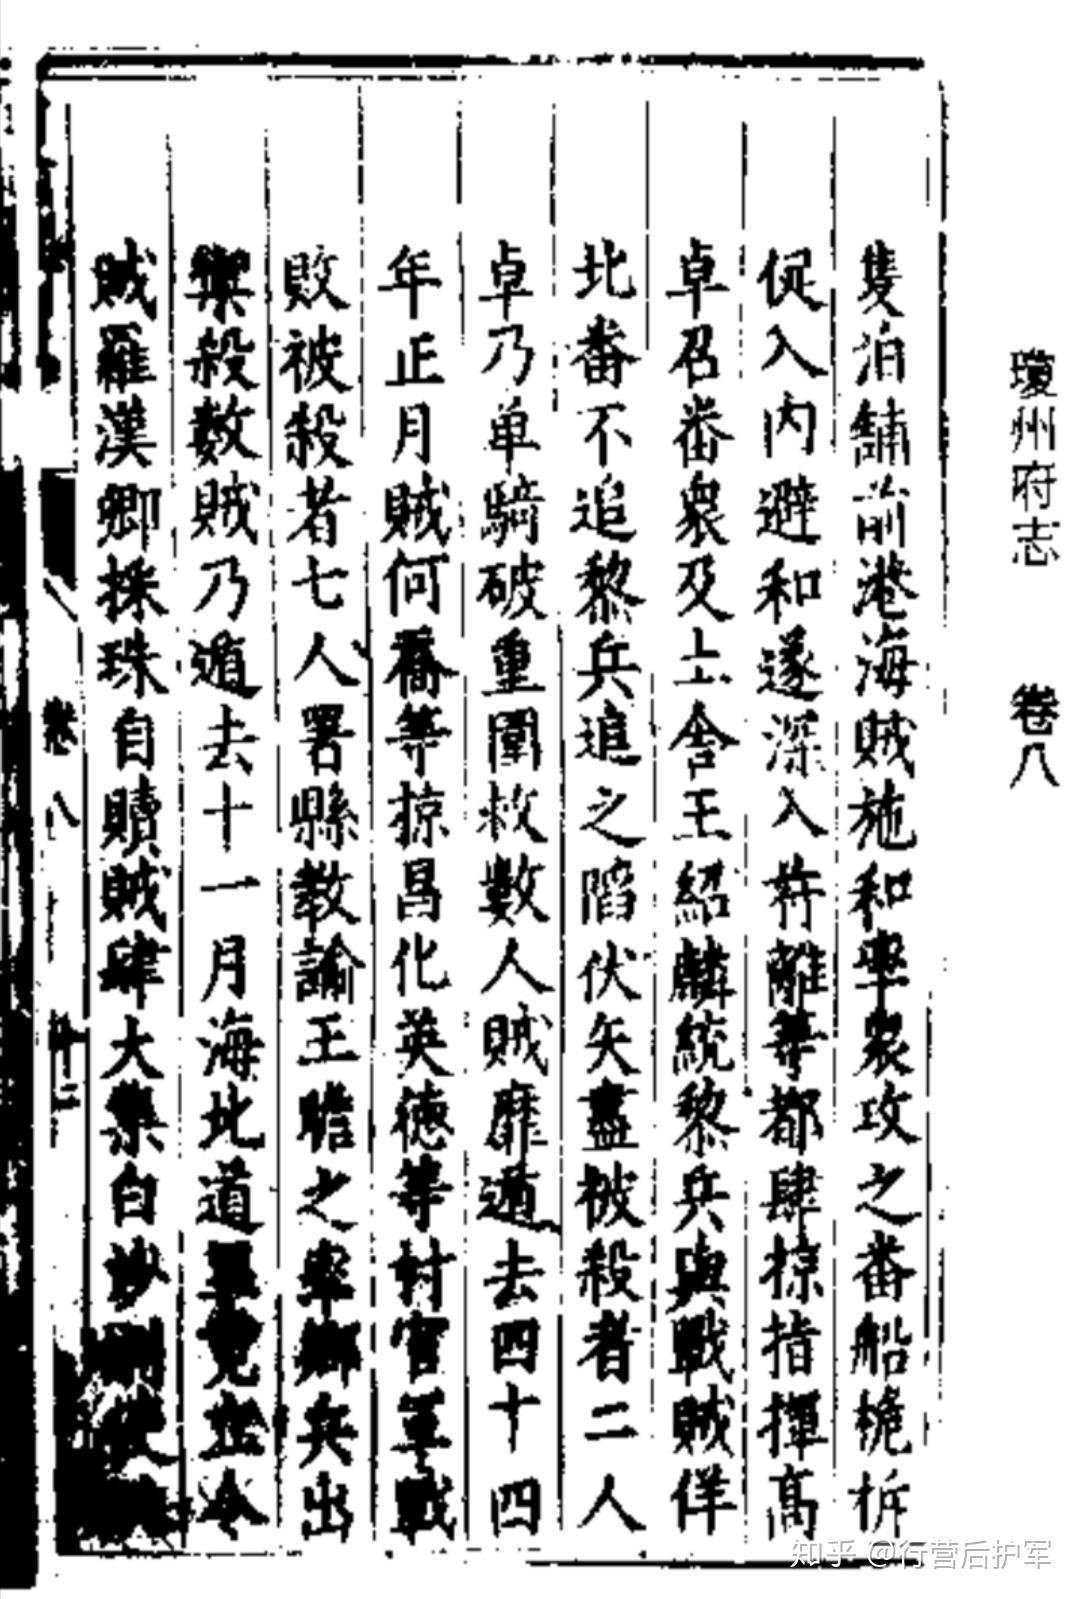 瓊州府志 卷八
隻泊鋪前港海賊施和率衆攻之番船桅折
促入內避和遂深入丼離等都肆掠指揮高
卓召番衆及土舍王紹麟統黎兵與戰賊佯
北番不追黎兵追之陷伏矢盡被殺者二人
卓乃单騎破重圍救數人賊靡遁去四十四
年正月賊何喬等掠昌化英德等村官軍戰
敗被殺者七人署縣教諭王瞻之率鄉兵出
禦殺数賊乃遁去十一月海北道
賊羅漢卿採珠自贖賊肆大集白沙
卷八 十二
知乎 @行营后护军